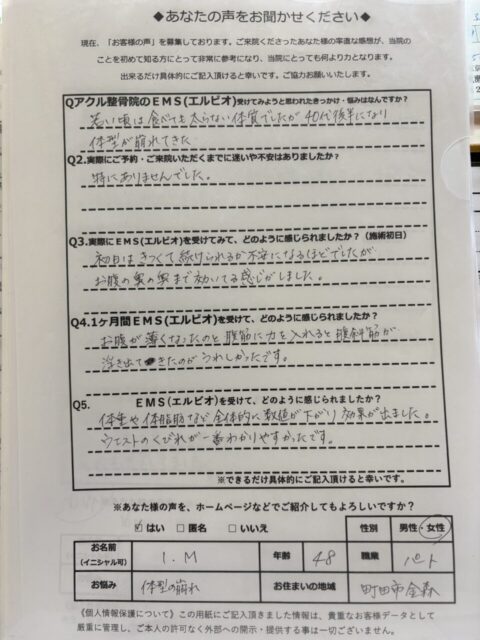 ◆あなたの声をお聞かせください◆
現在、「お客様の声」を募集しております。ご来院くださったあなた様の率直な感想が、当院の
ことを初めて知る方にとって非常に参考になり、当院にとっても何より力となります。
出来るだけ具体的にご記入頂けると幸いです。ご協力お願いいたします。
Qアクル整骨院のEMS(エルビオ)受けてみようと思われたきっかけ・悩みはなんですか？
若い頃は食べても太らない体質でしたが40代後半になり
体型が崩れてきた
Q2.実際にご予約・ご来院いただくまでに迷いや不安はありましたか？
特にありませんでした。
Q3.実際にEMS(エルビオ)を受けてみて、どのように感じられましたか？（施術初日）
初日はきつくて続けられるか不安になるほどでしたが
お腹の奥の奥まで効いてる感じがしました。
Q4.1ヶ月間EMS(エルビオ)を受けて、どのように感じられましたか？
お腹が薄くなったのと腹筋に力を入れると腹斜筋が
浮き出てきたのがうれしかったです。
Q5. EMS(エルビオ)を受けて、どのように感じられましたか？
体重や体脂肪など全体的に数値が下がり効果が出ました。
ウエストのくびれが一番わかりやすかったです。
※できるだけ具体的にご記入頂けると幸いです。
※あなた様の声を、ホームページなどでご紹介してもよろしいですか？
☑はい □匿名 □いいえ 性別 男性・女性
お名前 (イニシャル可) I.M 年齢 48 職業 パート
お悩み 体型の崩れ お住まいの地域 町田市金森
《個人情報保護について》この用紙にご記入頂きました情報は、貴重なお客様データとして
厳重に管理し、ご本人の許可なく外部への開示・提供する事は一切ございません。